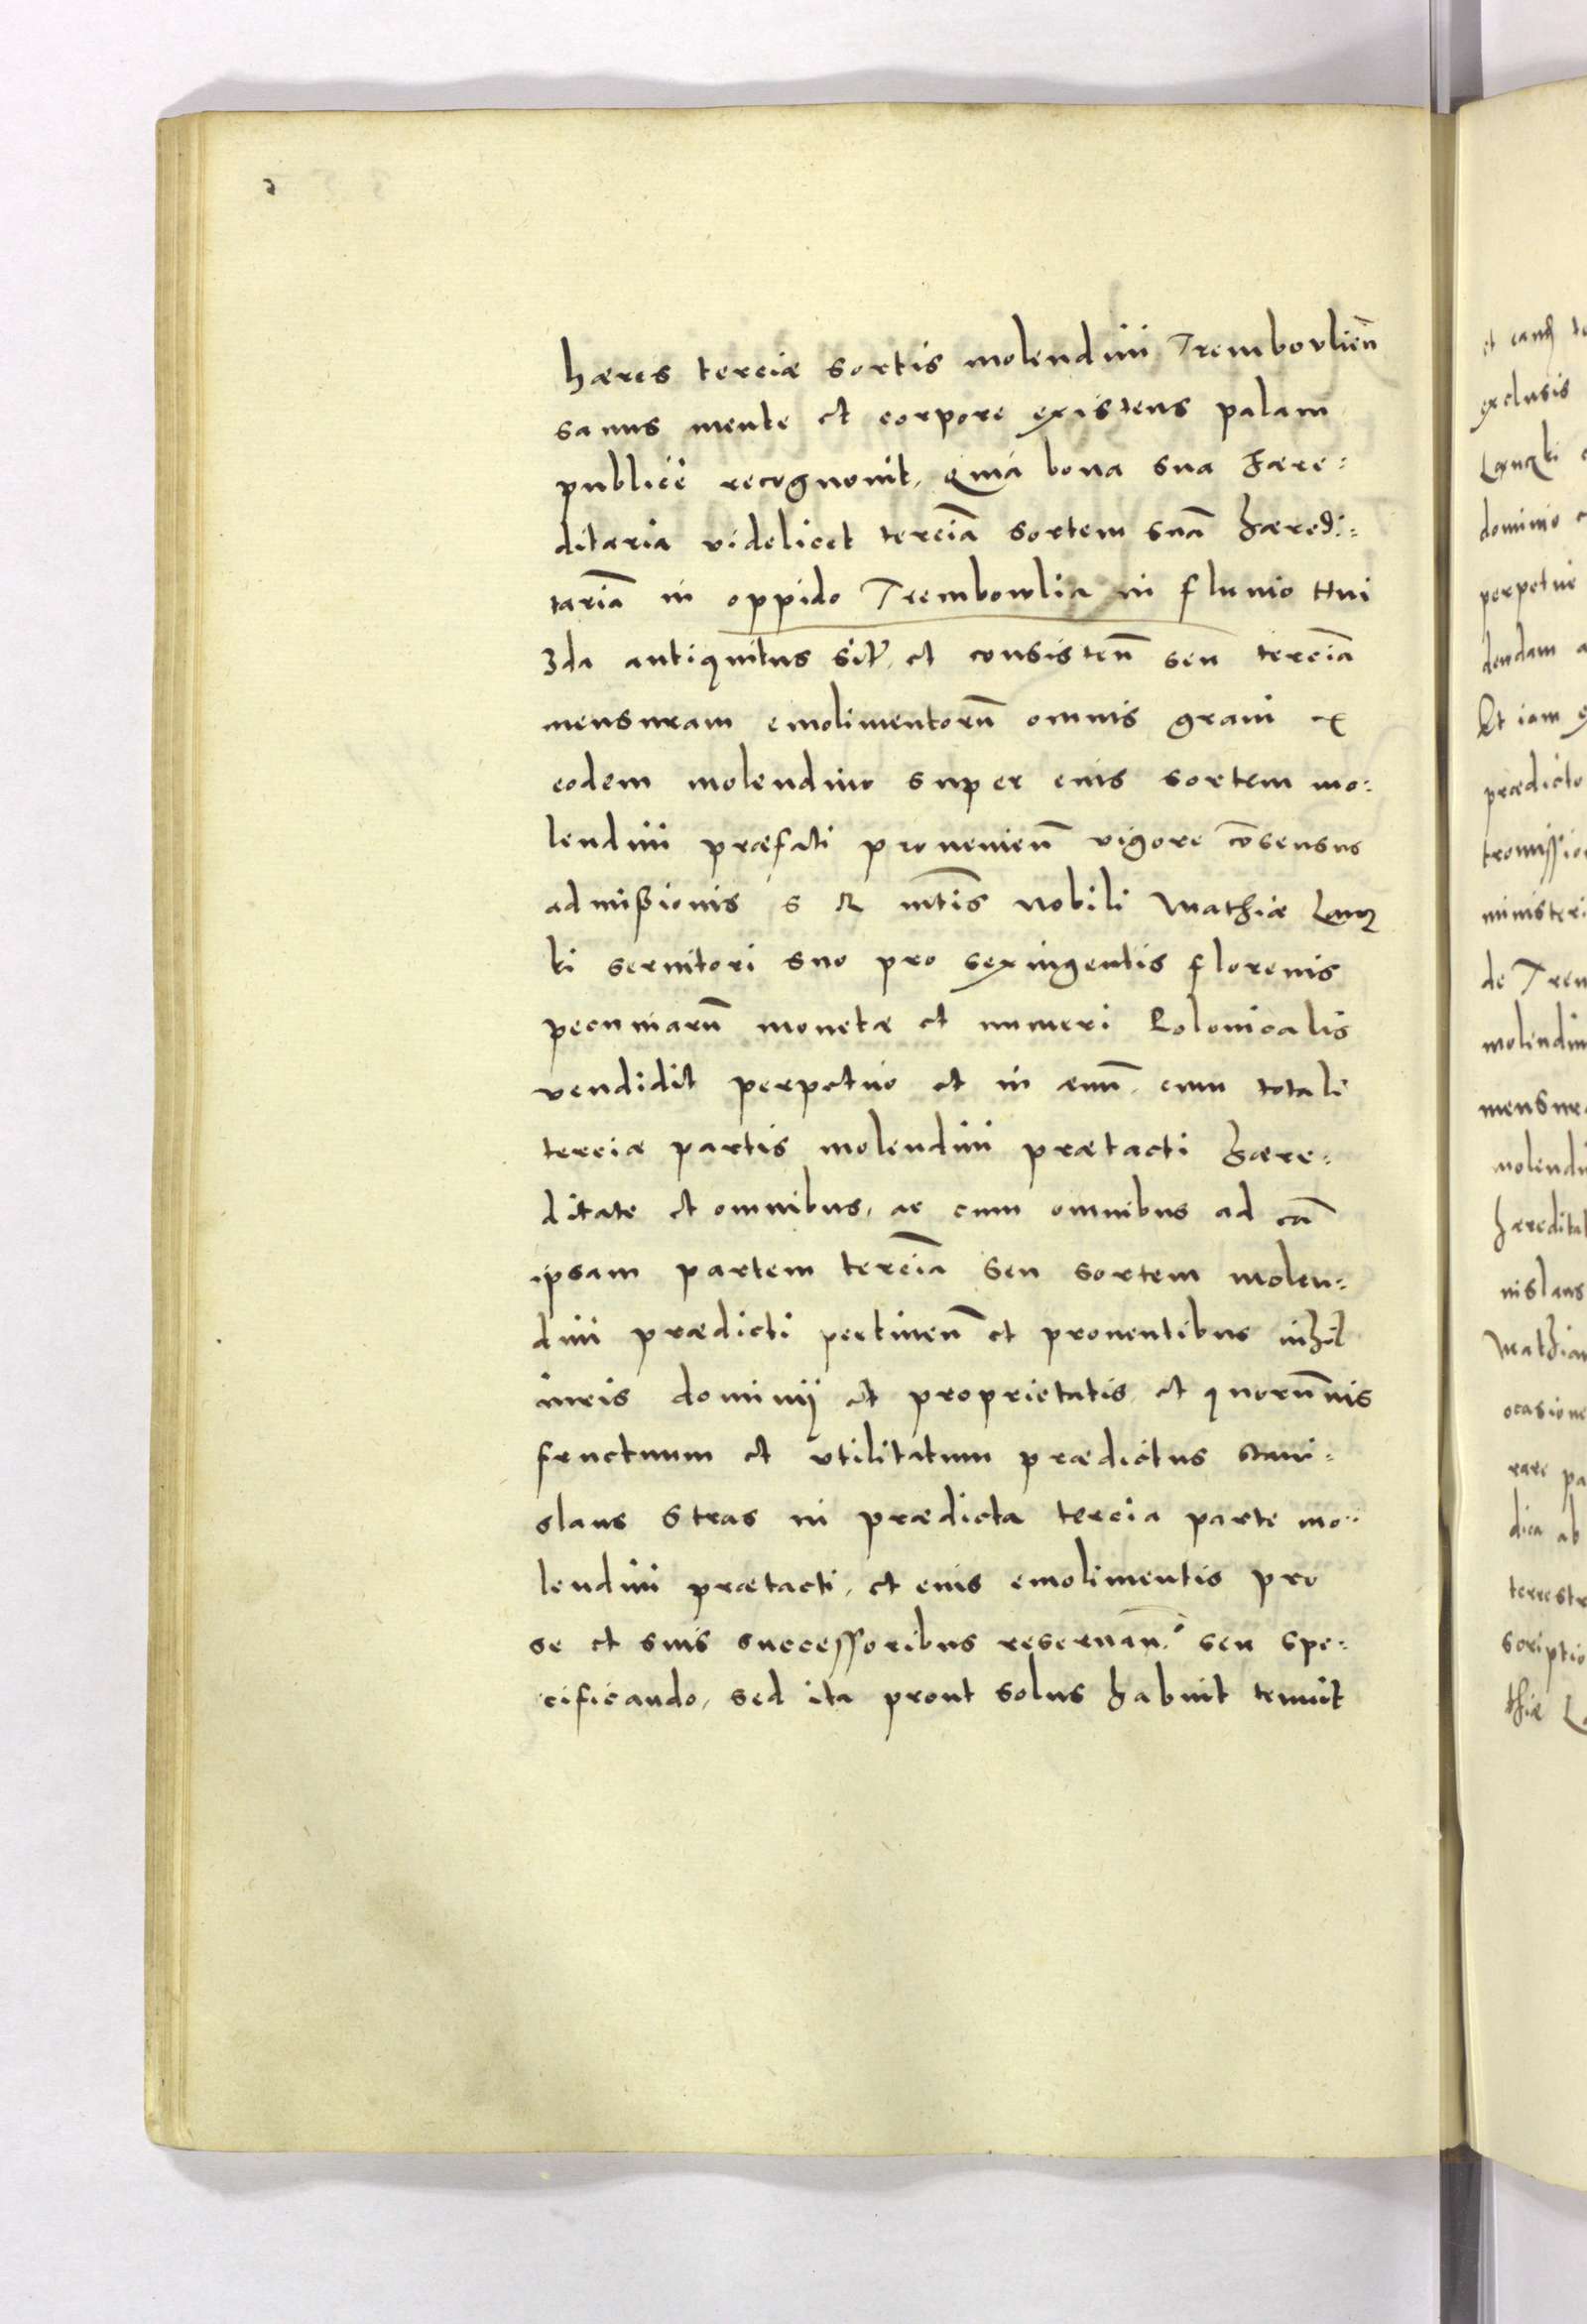 hæres terciæ sortis molendini Trembovlien̄
sanus mente et corpore existens palam
publicè recognovit, Quia bona sua hære:
ditaria videlicet terciā sortem suā hæredi:
tariā in oppido Trembowlia in fluvio Hni
zda antiquitus sit̄. et consisten̄ seu terciā
mensuram emolimentorū omnis grani ex
eodem molendino super eius sortem mo:
lendini præfati provenien̄ vigore cōsensus
admißionis S R mtīs Nobili Mathiæ Lancz
ki servitori suo pro sexingentis florenis
pecuniarū monetæ et numeri Polonicalis
vendidit perpetuo et in ævū, cum totali
terciæ partis molendini prætacti hære:
ditate et omnibus, ac cum omnibus ad eā
ipsam partem terciā seu sortem molen:
dini prædicti pertinen̄ et proventibus nihil
iuris dominij et proprietatis et quorūvis
fructuum et vtilitatum prædictus Stani:
slaus Stras in prædicta tercia parte mo:
lendini prætacti, et eius emolimentis pro
se et suis successoribus reservan̄. seu spe:
cificando, sed ita prout solus habuit tenuit
exclusis
dominio
perpetue
dendam
Et iam
prædicto
ministeri
de Trem
molindin
mensura
molendi
hæreditat
nislaus
Mathiam
ocasione
rare pa
dica ab
terrestr
scriptio
thiæ La